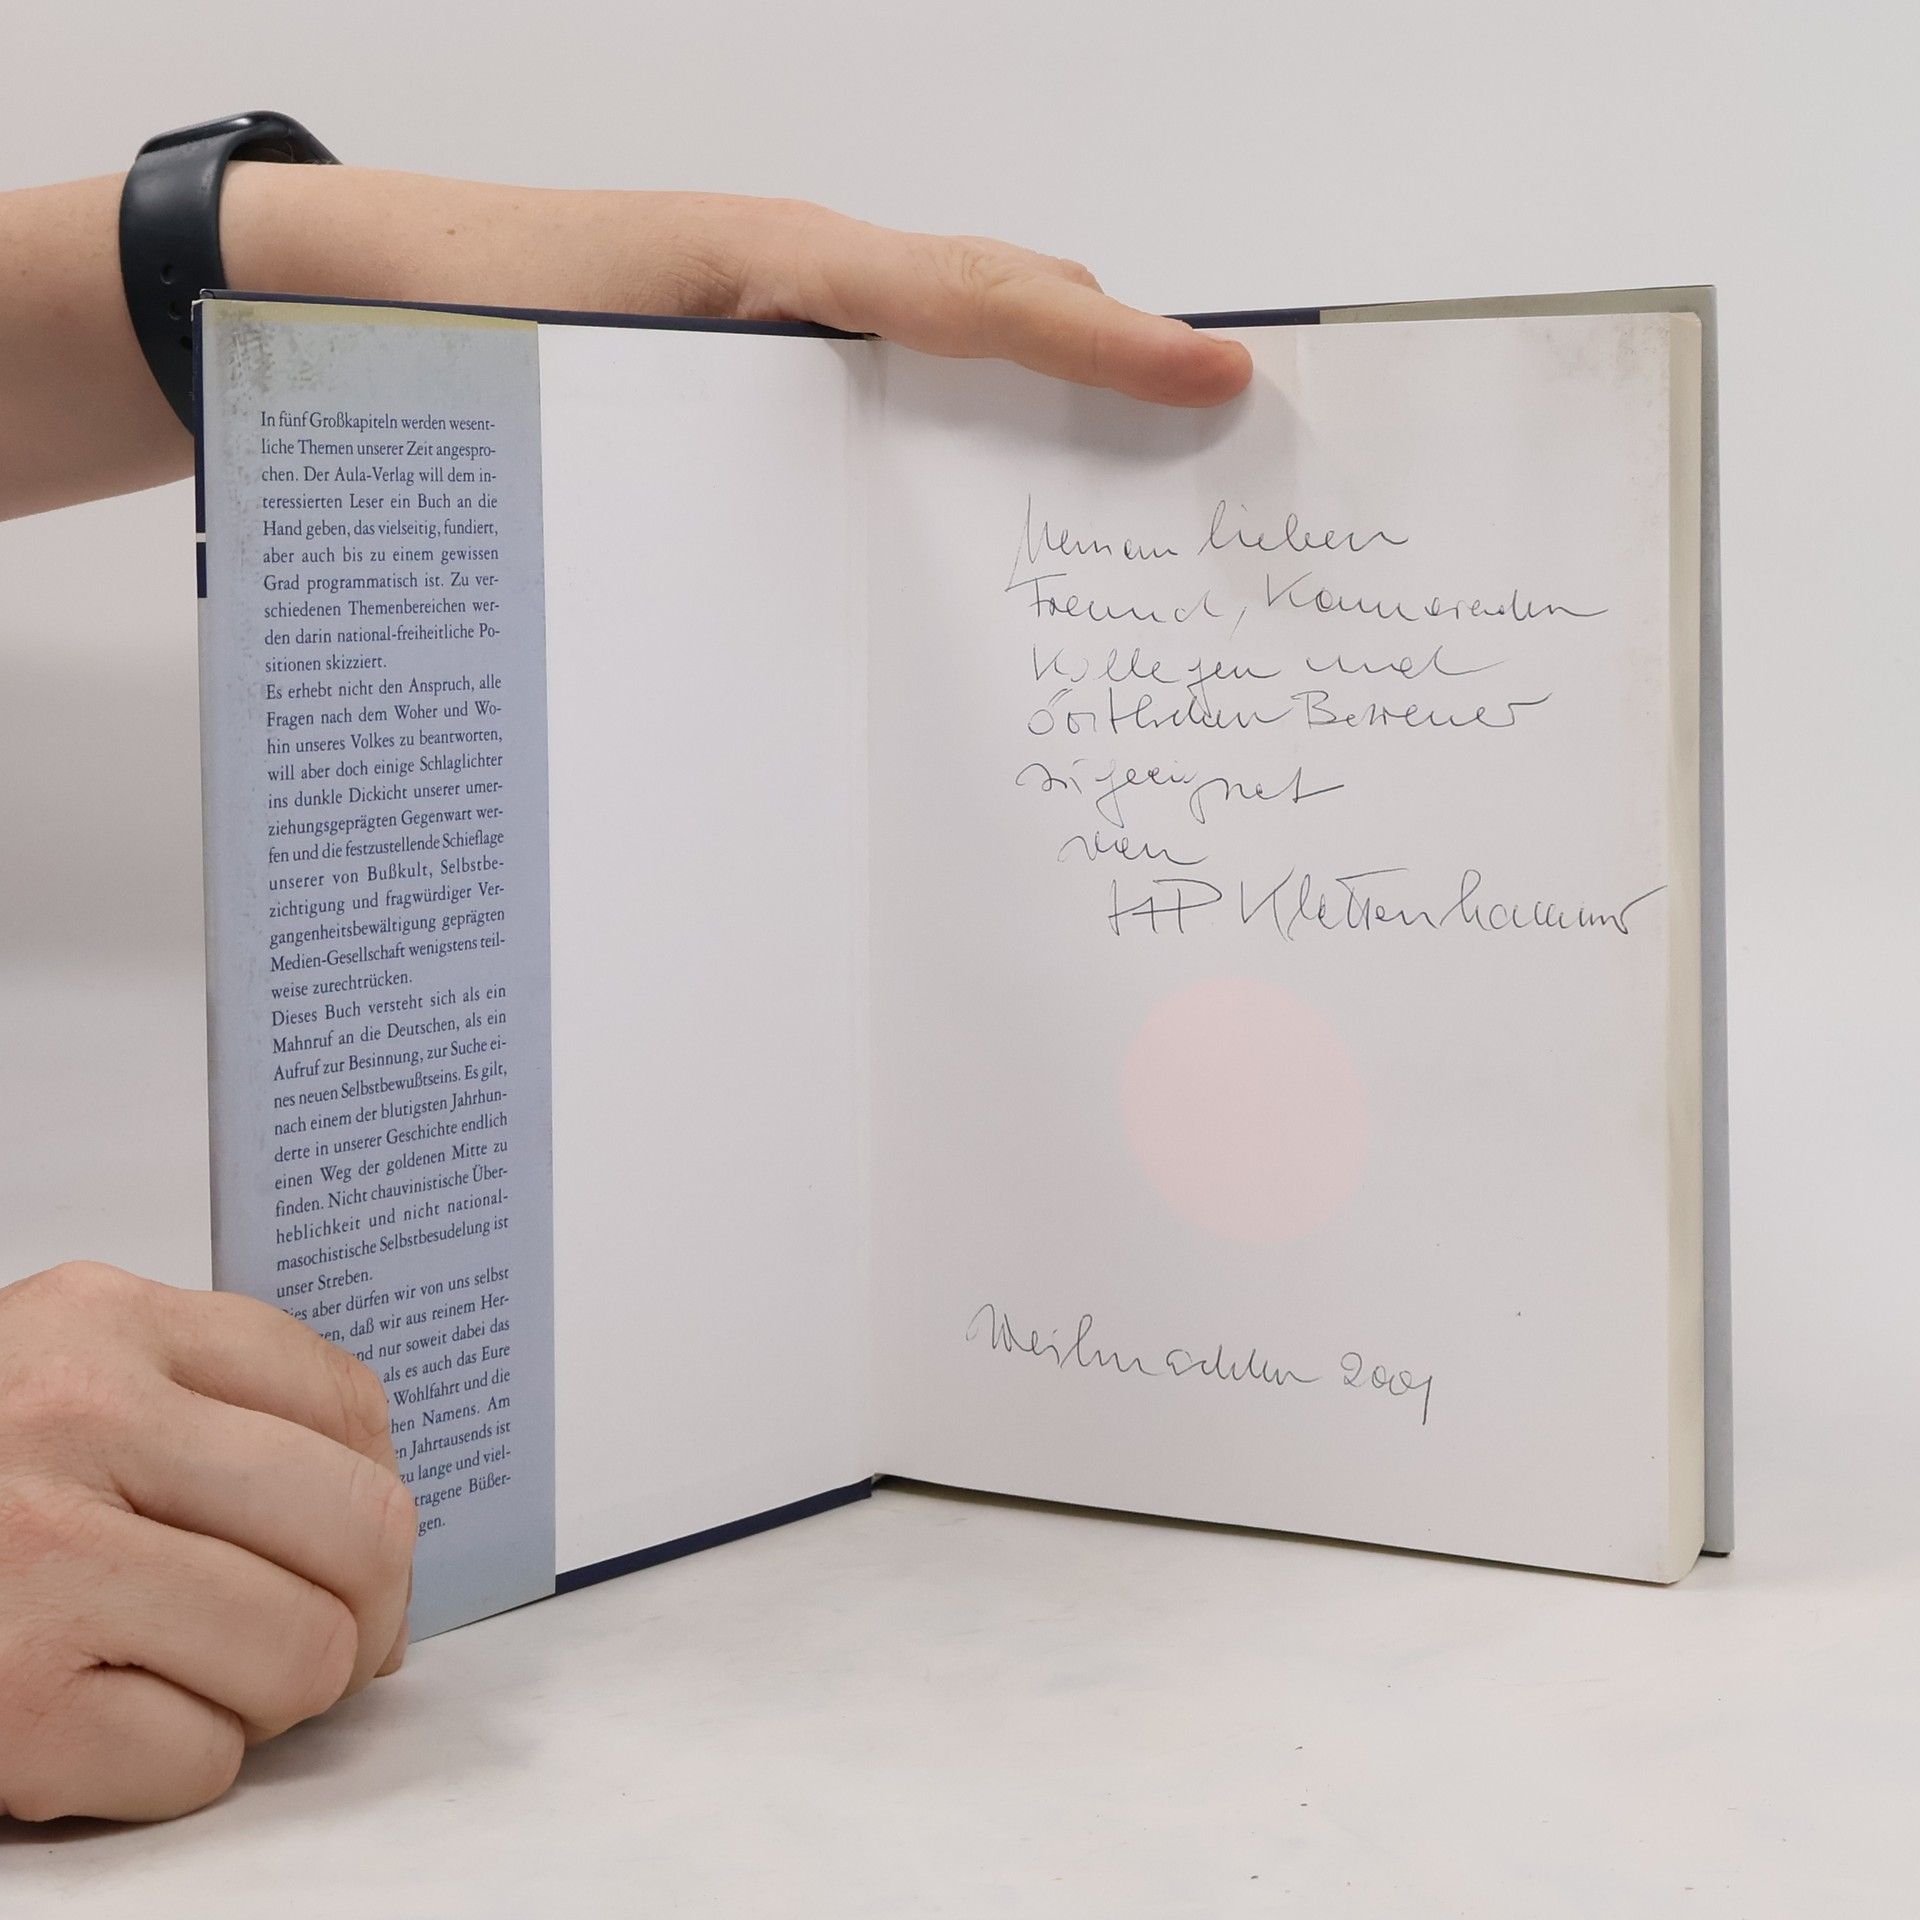 In fünf Großkapiteln werden wesent-
liche Themen unserer Zeit angespro-
chen. Der Aula-Verlag will dem in-
teressierten Leser ein Buch an die
Hand geben, das vielseitig, fundiert,
aber auch bis zu einem gewissen
Grad programmatisch ist. Zu ver-
schiedenen Themenbereichen wer-
den darin national-freiheitliche Po-
sitionen skizziert.
Es erhebt nicht den Anspruch, alle
Fragen nach dem Woher und Wo-
hin unseres Volkes zu beantworten,
will aber doch einige Schlaglichter
ins dunkle Dickicht unserer umer-
ziehungsgeprägten Gegenwart wer-
fen und die festzustellende Schieflage
unserer von Bußkult, Selbstbe-
zichtigung und fragwürdiger Ver-
gangenheitsbewältigung geprägten
Medien-Gesellschaft wenigstens teil-
weise zurechtrücken.
Dieses Buch versteht sich als ein
Mahnruf an die Deutschen, als ein
Aufruf zur Besinnung, zur Suche ei-
nes neuen Selbstbewußtseins. Es gilt,
nach einem der blutigsten Jahrhun-
derte in unserer Geschichte endlich
einen Weg der goldenen Mitte zu
finden. Nicht chauvinistische Über-
heblichkeit und nicht national-
masochistische Selbstbesudelung ist
unser Streben.
Dies aber dürfen wir von uns selbst
gen, daß wir aus reinem Her-
nd nur soweit dabei das
als es auch das Eure
Wohlfahrt und die
hen Namens. Am
en Jahrtausends ist
zu lange und viel-
tragene Büßer-
gen.
Meinem lieben
Freund, Kameraden
Kollegen und
örtlichen Betreuer
zugeeignet
von
HP Klettenhammer
Weihnachten 2001